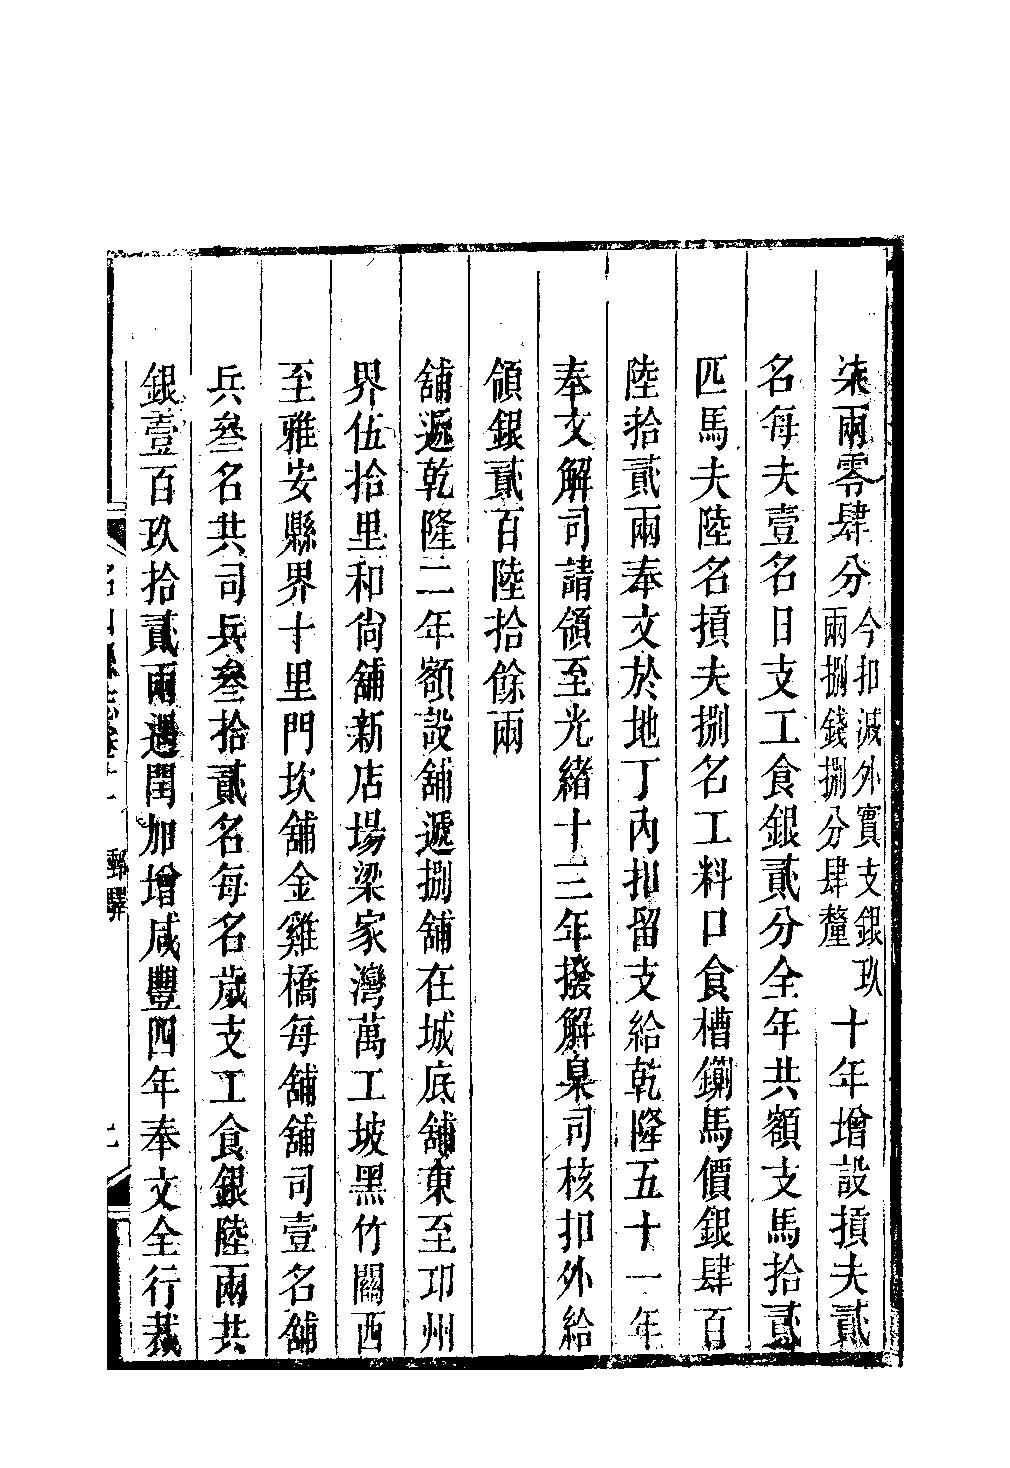 柒兩零肆分今扣減外實支銀玖兩捌錢捌分肆釐十年增設摃夫貳
名每夫壹名日支工食銀貳分全年共額支馬拾貳
匹馬夫陸名摃夫捌名工料口食槽鍘馬價銀肆百
陸拾貳兩奉文於地丁內扣留支給乾隆五十一年
奉文解司請領至光緒十三年撥解臬司核扣外給
領銀貳百陸拾餘兩
舖遞乾隆二年額設舖遞捌舖在城底舖東至邛州
界伍拾里和尙舖新店場梁家灣萬工坡黑竹關西
至雅安縣界十里門坎舖金雞橋每舖舖司壹名舖
兵叄名共司兵叄拾貳名每名歲支工食銀陸兩共
銀壹百玖拾貳兩遇閏加增咸豐四年奉文全行裁
名山縣志卷十一 郵驛